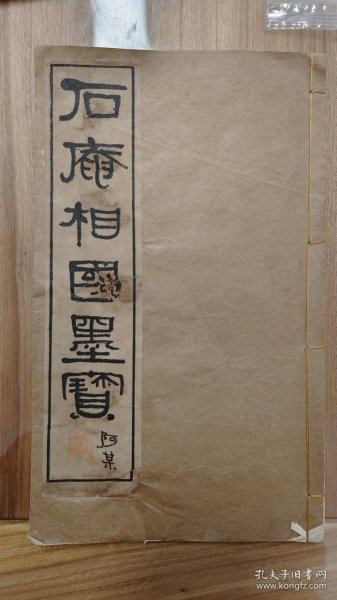 石庵相國墨寶
阿某
孔夫子旧书网
www.kongfz.com